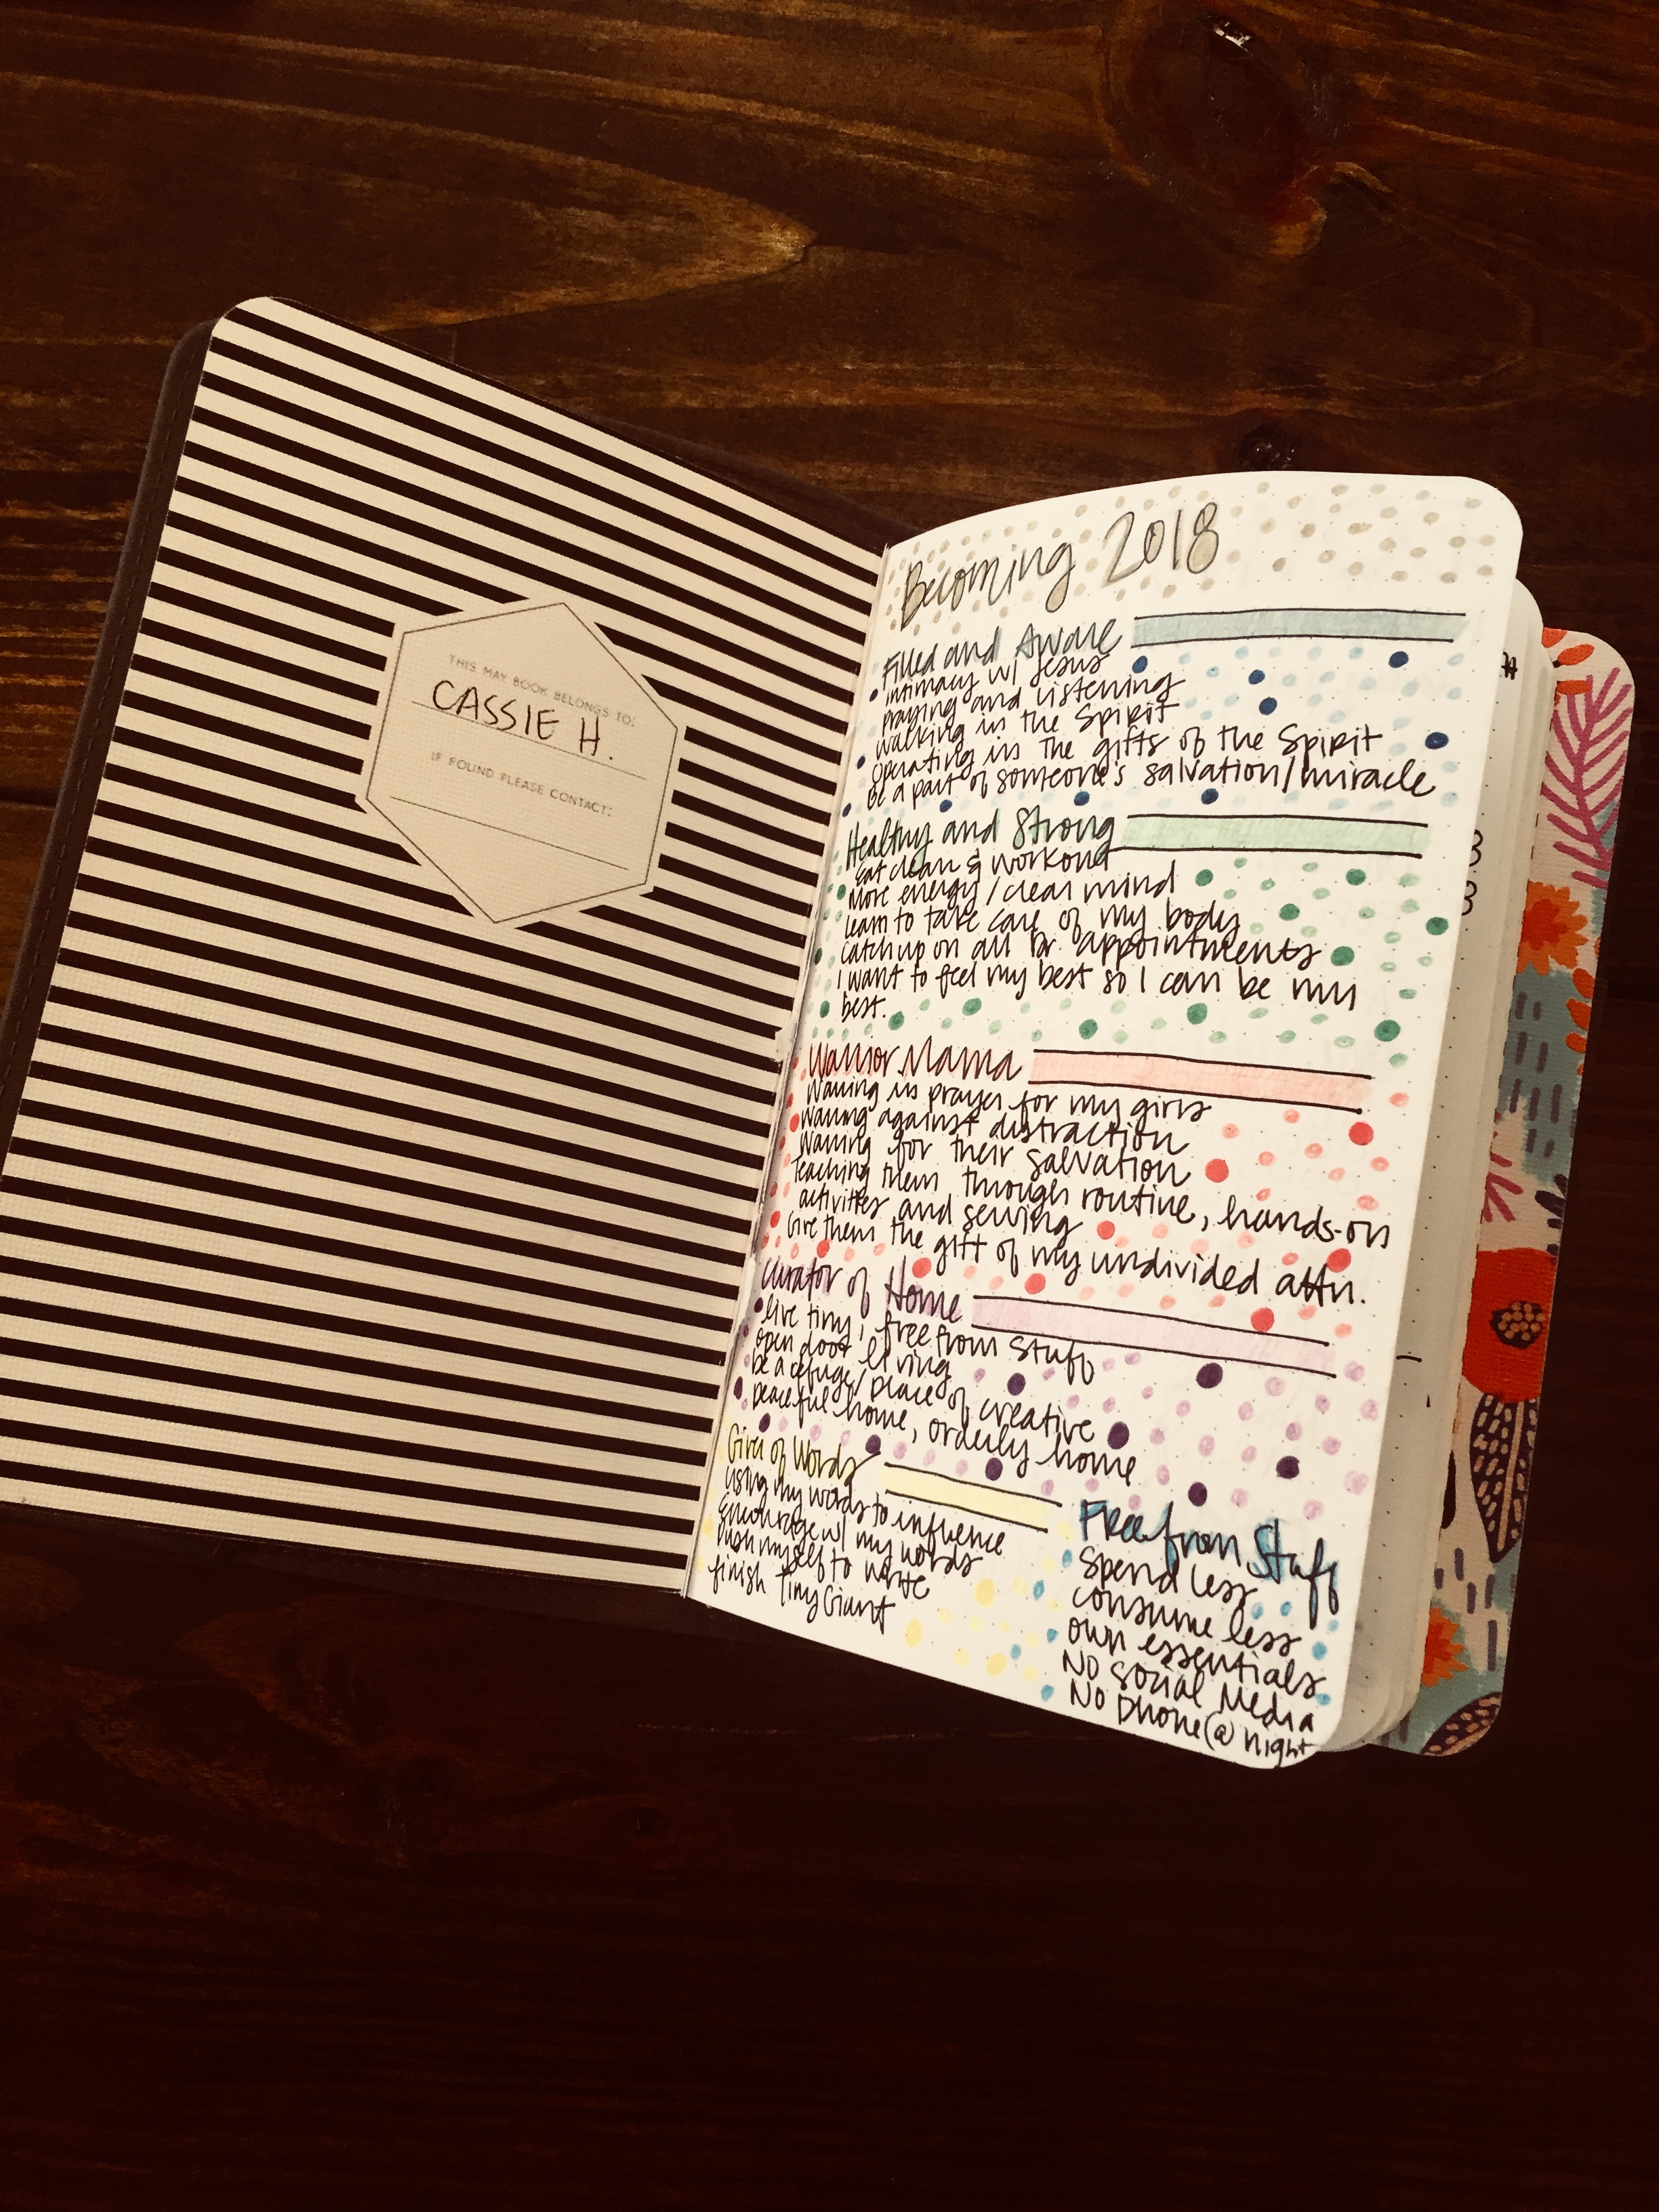 THIS MAY BOOK BELONGS TO:
CASSIE H.
IF FOUND PLEASE CONTACT:
Becoming 2018
Filled and Aware
intimacy w/ Jesus
praying and listening
walking in the Spirit
operating in the gifts of the Spirit
be a part of someone's salvation/miracle
Healthy and Strong
Eat clean & workout
More energy/clear mind
learn to take care of my body
catch up on all Dr. appointments
I want to feel my best so I can be my
best.
Warrior Mama
Warring in prayer for my girls
Warring against distraction
Warring for their salvation
teaching them through routine, hands-on
activities and serving
Give them the gift of my undivided attn.
Curator of Home
live tiny, free from stuff
open door living
be a refuge/place of creative
peaceful home, orderly home
Giver of Words
Using my words to influence
Encourage w/ my words
Push myself to write
finish Tiny Giant
Free from Stuff
Spend less
consume less
own essentials
No Social Media
No Phone @ night